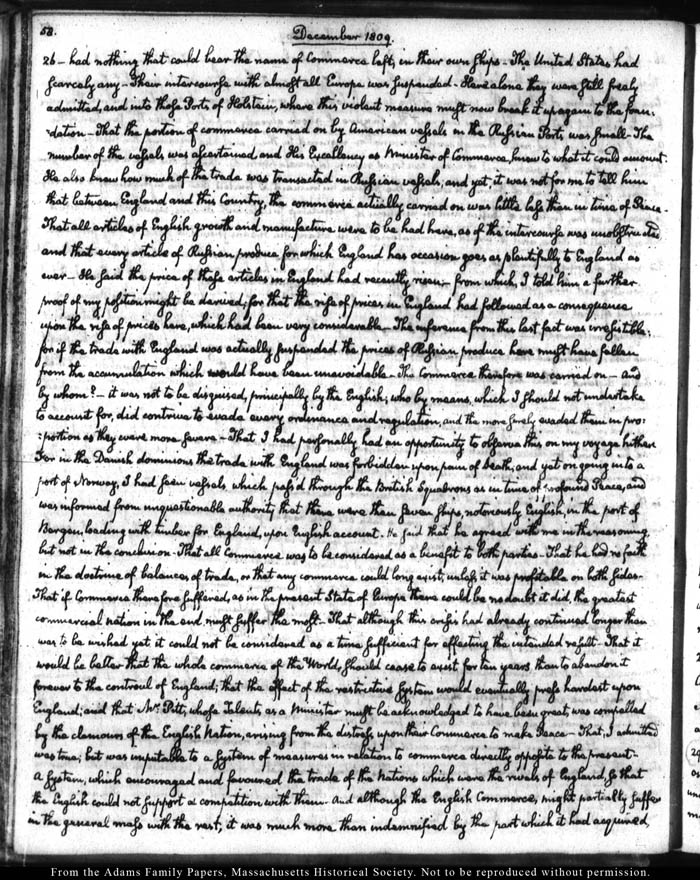 58.
December 1809.
26 - had nothing that could bear the name of Commerce left, in their own ships - The United States had
scarcely any - Their intercourse with almost all Europe was suspended - Here alone they were still freely
admitted, and into those Ports of Holstein, where this violent measure must now break it up again to the foun-
dation - That the portion of commerce carried on by American vessels in the Russian Ports was small - The
number of the vessels was ascertained and His Excellency as Minister of Commerce, knew to what it could amount.
He also knew how much of the trade was transacted in Russian vessels, and yet, it was not for me to tell him
that between England and this Country, the commerce actually carried on was little less than in time of Peace -
That all articles of English growth and manufacture were to be had here, as if the intercourse was unobstructed
and that every article of Russian produce for which England has occasion goes as plentifully to England as
ever - He said the price of those articles in England had recently risen - from which, I told him a further
proof of my position might be derived; for that the rise of prices in England had followed as a consequence
upon the rise of prices here, which had been very considerable - The inference from this last fact was irresistible;
for if the trade with England was actually suspended the prices of Russian produce here must have fallen
from the accumulation which would have been unavoidable - The Commerce therefore was carried on - And
by whom? - it was not to be disguised, principally by the English; who by means, which I should not undertake
to account for, did contrive to evade every ordinance and regulation, and the more surely evaded them in pro-
:portion as they were more severe - That I had personally had an opportunity to observe this on my voyage hither
For in the Danish dominions the trade with England was forbidden upon pain of Death, and yet on going into a
port of Norway, I had seen vessels which pass'd through the British Squadrons as in time of profound Peace, and
was informed from unquestionable authority that there were then seven ships, notoriously English, in the port of
Bergen, loading with timber for England, upon English account. He said that he agreed with me in the reasoning,
but not in the conclusion - That all Commerce was to be considered as a benefit to both parties - That he had no faith
in the doctrine of balances of trade, or that any commerce could long exist, unless it was profitable on both sides -
That if Commerce therefore suffered, as in the present State of Europe there could be no doubt it did, the greatest
commercial nation in the end must suffer the most - That although this crisis had already continued longer than
was to be wished yet it could not be considered as a time sufficient for effecting the intended result - That it
would be better that the whole commerce of the World, should cease to exist for ten years than to abandon it
forever to the controul of England; that the effect of the restrictive System would eventually press hardest upon
England; and that Mr. Pitt, whose Talents, as a Minister must be acknowledged to have been great, was compelled
by the clamours of the English Nation, arising from the distress upon their Commerce to make Peace - That, I admitted
was true; but was imputable to a System of measures in relation to commerce directly opposite to the present -
A System, which encouraged and favoured the trade of the Nations which were the rivals of England, so that
the English could not support a competition with them. And although the English Commerce, might partially suffer
in the general mass with the rest, it was much more than indemnified by the part which it had acquired,
From the Adams Family Papers, Massachusetts Historical Society. Not to be reproduced without permission.